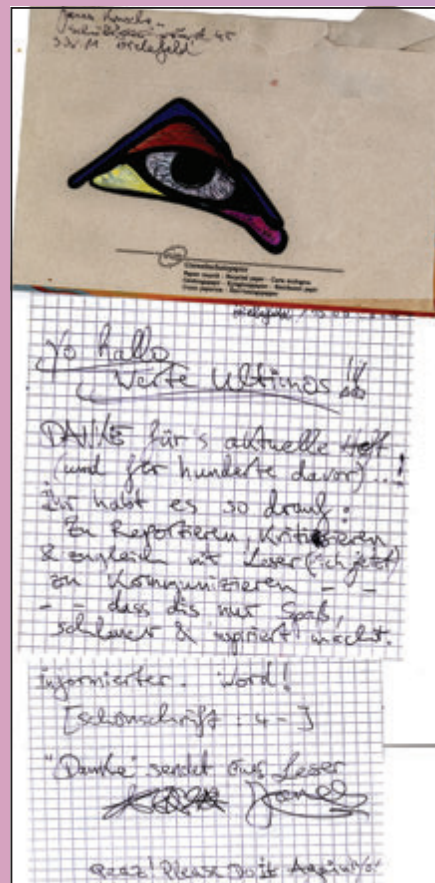 Jonas
33611 Bielefeld
Umweltschutzpapier
Bielefeld,
Yo hallo
Werte Ultimos!!!
DANKE für's aktuelle Heft
(und fer hunderte davor)...!
Ihr habt es so drauf:
Zu Reportieren, Kritisieren
& zugleich mit Leser (ich jetzt)
zu Kommunizieren - -
- - dass dis nur Spaß,
schlauer & inspiriert macht.
informierter. Word!
[schönschrift: 4-]
"Danke" sendet Euer Leser
Jonas
Please Do it Again